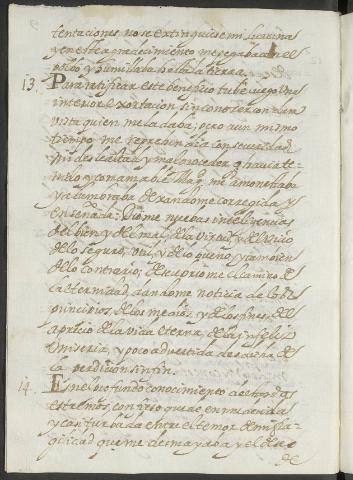 tentaciones, no se extinguiese mi lucerina
y en este agradecimiento me pegaba con el
polbo y humillaba hasta la tierra.
13. Para ratificar este beneficio tube luego una
interior exortacion sin conocer con clara
vista quien me la daba; pero a un mismo
tiempo me reprendia con severidad
mi deslealtad y mal proceder q havia te-
nido y con amable Mag. me amonestaba
y alumbraba dexandome corregida y
enseñada. Diome nuebas inteligencias
del bien y del mal, de la virtud y el vicio
de lo seguro, util, y de lo bueno y tambien
de lo contrario; descubriome el camino de
la eternidad, dandome noticia de los
principios, de los medios, y de los fines, del
aprecio de la vida eterna, de la infeliz
miseria, y poco advertida desdicha de
la perdicion sin fin.
14. En el profundo conocimiento de estos dos
estremos, confieso quede enmudecida
y casi turbada entre el temor de mi fra-
gilidad que me desmayaba y el deseo
de